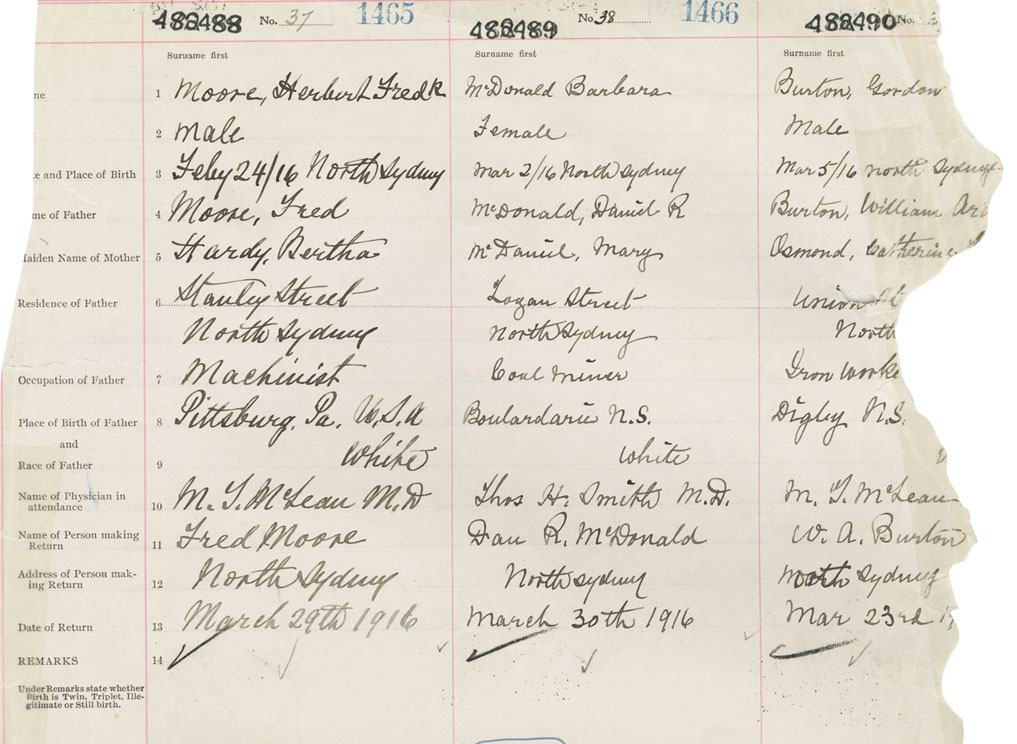 482488 No. 37 1465 482489 No. 38 1466 482490 No.
Surname first Surname first Surname first
1 Moore, Herbert Fredk McDonald Barbara Burton, Gordon
2 Male Female Male
and Place of Birth 3 Feby 24/16 North Sydney Mar 2/16 North Sydney Mar 5/16 North Sydney
of Father 4 Moore, Fred McDonald, Daniel R Burton, William
Maiden Name of Mother 5 Hardy, Bertha McDaniel, Mary Osmond, Catherine
Residence of Father 6 Stanley Street Logan Street Union St
North Sydney North Sydney North
Occupation of Father 7 Machinist Coal Miner Iron Worke
Place of Birth of Father 8 Pittsburg, Pa. U.S.A Boulardarie N.S. Digby N.S.
and
Race of Father 9 White White
Name of Physician in
attendance 10 M. T. McLean M.D Thos H. Smith M.D. M. T. McLean
Name of Person making
Return 11 Fred Moore Dan R. McDonald W. A. Burton
Address of Person mak-
ing Return 12 North Sydney North Sydney North Sydney
Date of Return 13 March 29th 1916 March 30th 1916 Mar 23rd
REMARKS 14
Under Remarks state whether
Birth is Twin, Triplet, Ille-
gitimate or Still birth.